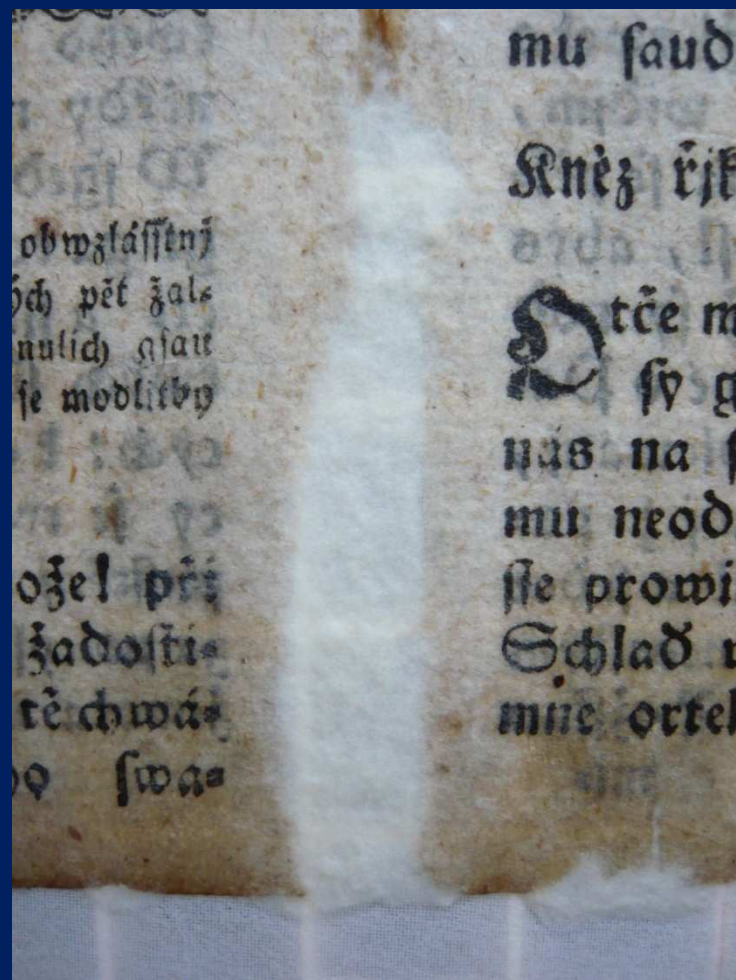 obwzlásstný
ých pět žal-
nulich gsau
se modlitby
ože! při
žadosti-
tě chwá-
swa-
mu saud
Kněz řjk
Otče m
sy g
nás na s
mu neod
sse prowi
Schlaď
mne ortel